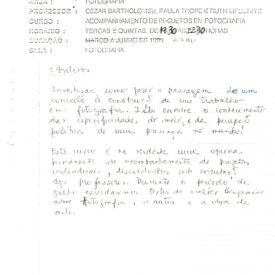 ÁREA : FOTOGRAFIA
PROFESSOR : CEZAR BARTHOLOMEU, PAULA TROPE E RUTH
CURSO : ACOMPANHAMENTO DE PROJETOS EM FOTOGRAFIA
HORÁRIO : TERÇAS E QUINTAS, DE 19:30 22:30 HORAS
DURAÇÃO : MARÇO A JUNHO DE 1991
SALA : FOTOGRAFIA
Objetivos
Investigar como pode a passagem de um
conceito à construção de um trabalho
em fotografia. Isto envolve o conhecimento
das especificidades do meio, e da
política de uma presença no mundo.
Este curso é na verdade uma oficina
permanente de acompanhamento de projetos
individuais, desenvolvidos sob orientação
dos professores. Durante o período de
julho estudaremos textos de Walter Benjamin
sobre fotografia, o autor e a obra de
arte.